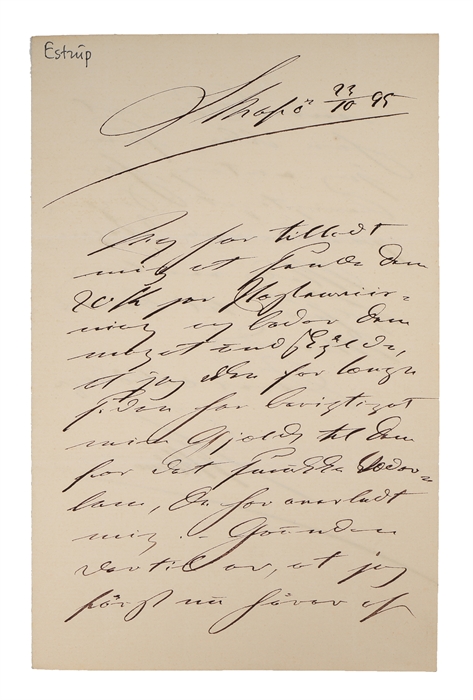 Estrup
Skafö 23/10 95
Jeg har tilladt
mig at sende Dem
20 Kr for
mig og beder Dem
meget undskylde,
at jeg ikke for længe
siden har berigtiget
min Gjæld til Dem
for det smukke
De har overladt
mig. - Grunden
dertil er, at jeg
først nu har af